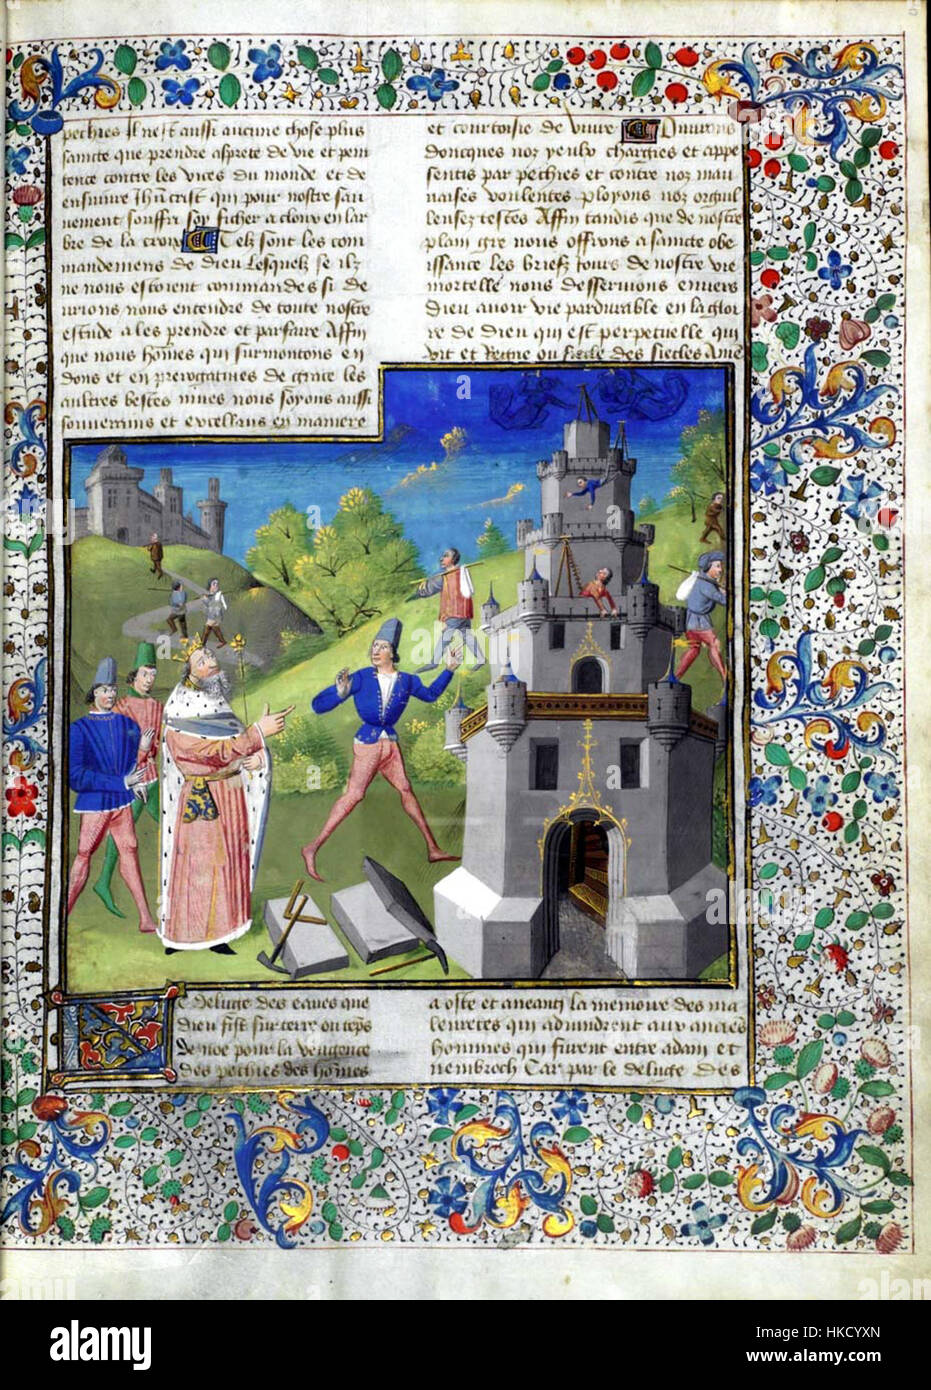 pechies Il nest aussi aucune chose plus
saincte que prendre asprete de vie et peni
tence contre les vices du monde et de
ensuivre Jhucrist qui pour nostre sau
uement souffri soy ficher a cloux en lar
bre de la croix Telz sont les com
mandemens de dieu Lesquelz se ilz
ne nous estoient commandes si de
urions nous entendre de toute nostre
estude a les prendre et parfaire Affin
que nous homes qui surmontons en
dons et en prerogatiues de grace les
aultres bestes mues nous soyons aussi
souuerains et excellans en maniere
et courtoisie de viure Ouurons
doncques noz yeulx chargies et appe
sentis par pechies et contre noz mau
uaises voulentes ployons noz orguil
leuses testes Affin tandis que de nostre
plain gre nous offrons a saincte obe
issance les briefz jours de nostre vie
mortelle nous desseruions enuers
dieu auoir vie pardurable en la gloi
re de dieu qui est perpetuelle qui
vit et Regne ou siecle des siecles Ame
e deluge des eaues que
dieu fist sur terre ou teps
de noe pour la vengence
des pechies des homes
a oste et aneanti la memoire des ma
leuretes qui aduindrent aux anciens
hommes qui furent entre adam et
nembroth Car par le deluge des
alamy
Image ID: HKCYXN
www.alamy.com